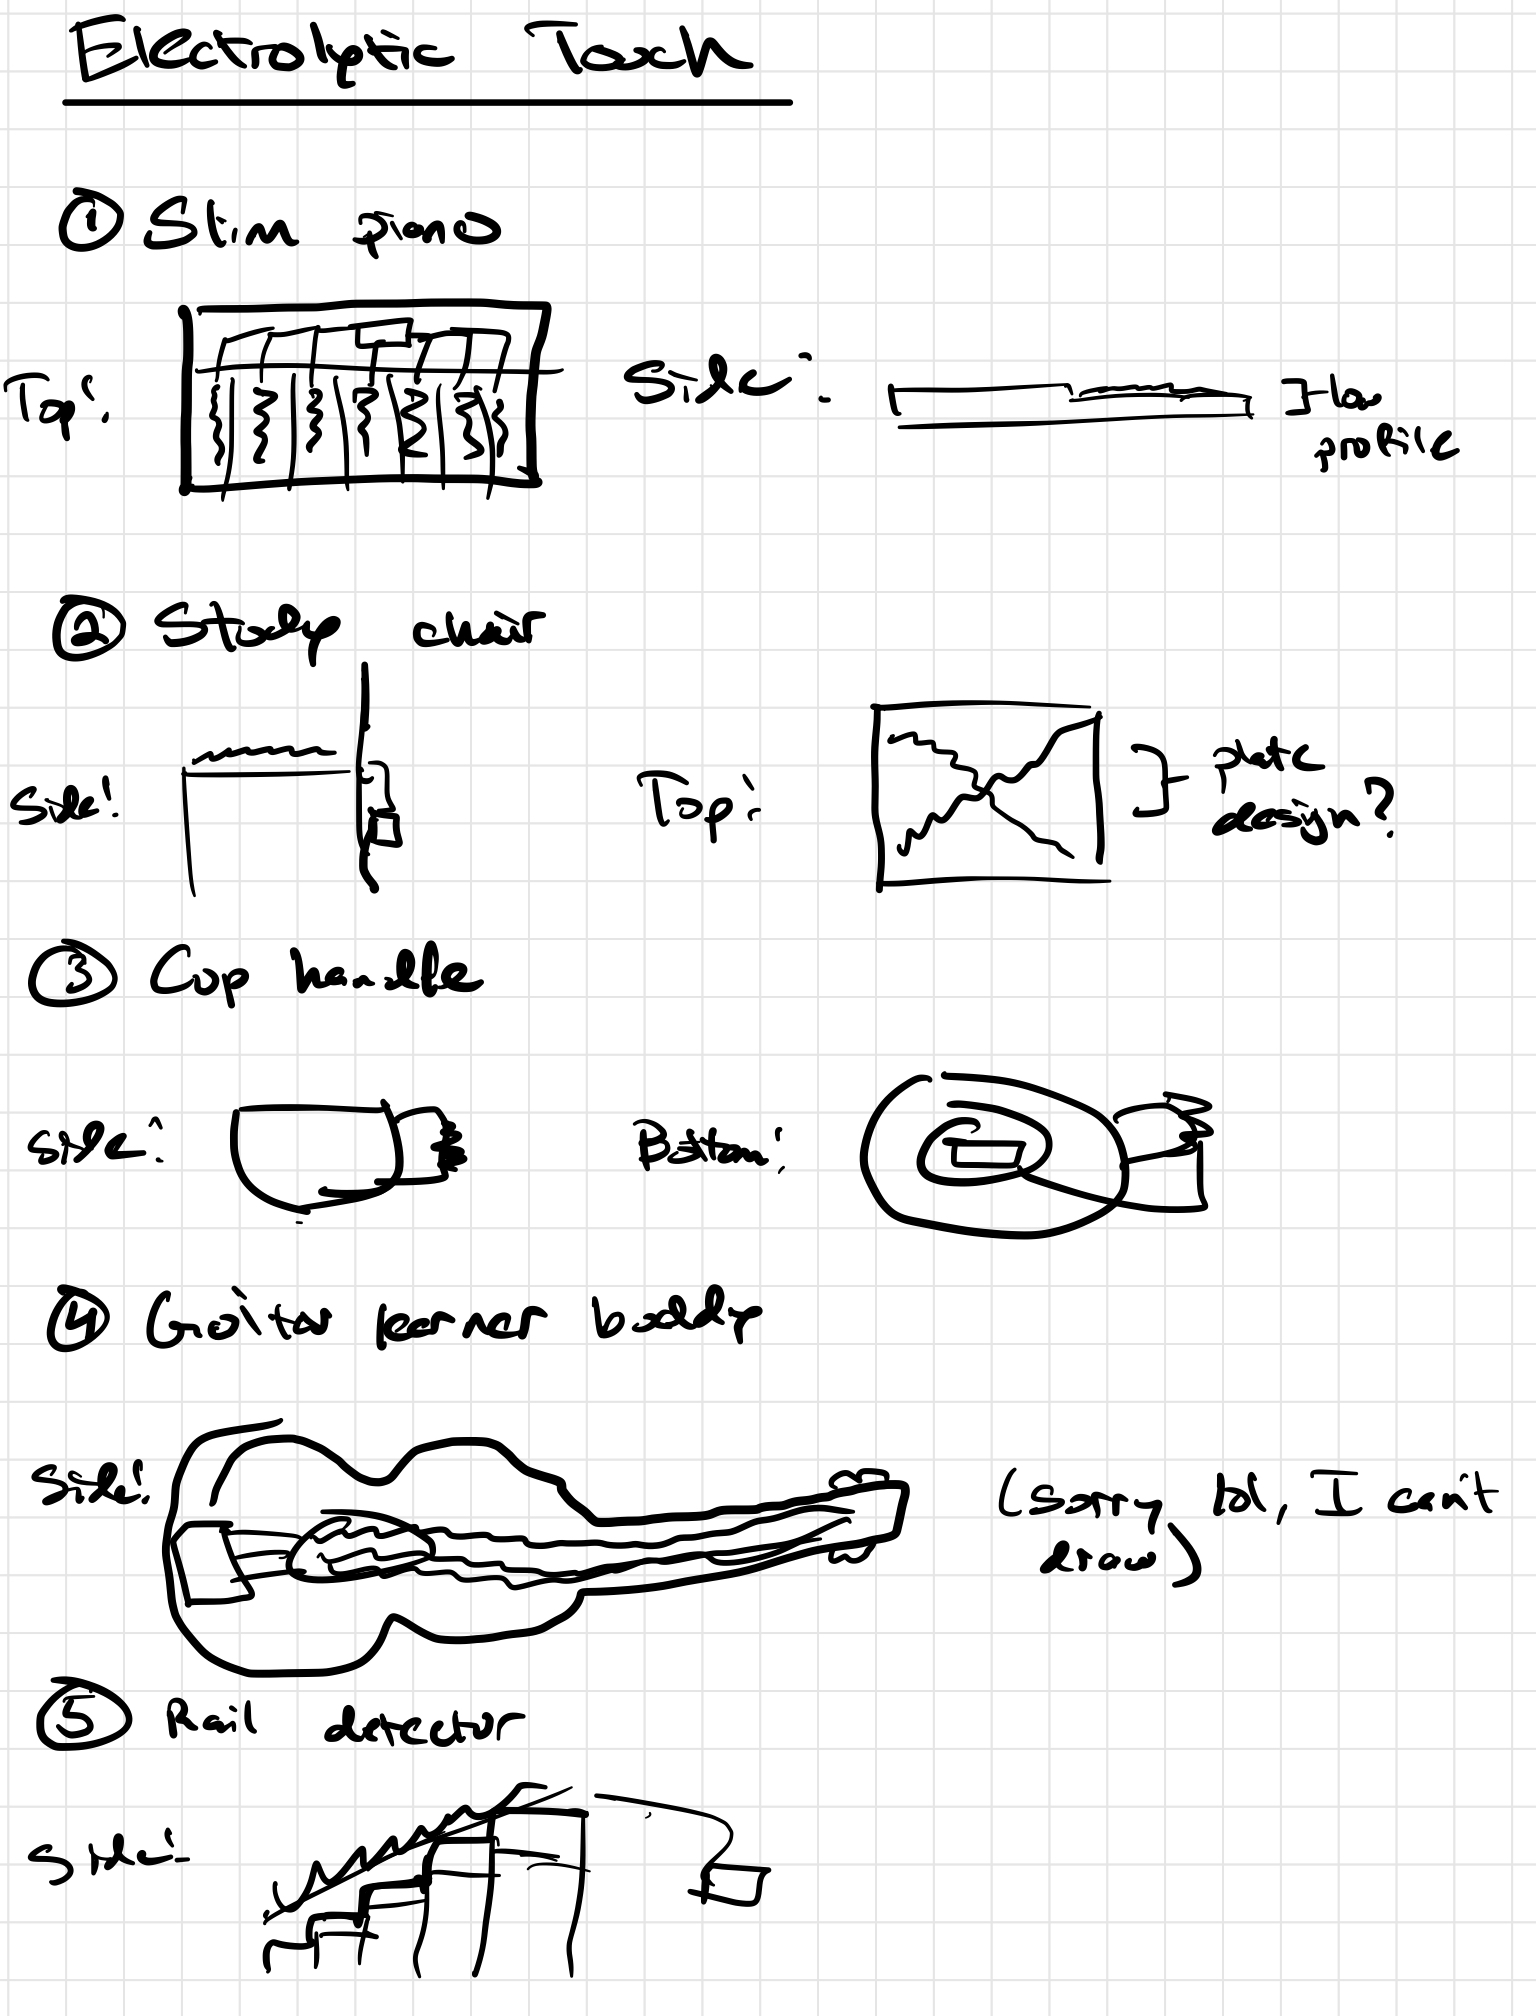 Electrolytic Touch
① Slim piano
Top:
Side:
low
profile
② Study chair
Side:
Top:
plate
design?
③ Cup handle
Side:
Bottom:
④ Guitar learner boddy
Side:
(sorry lol, I can't
draw)
⑤ Rail detector
Side: